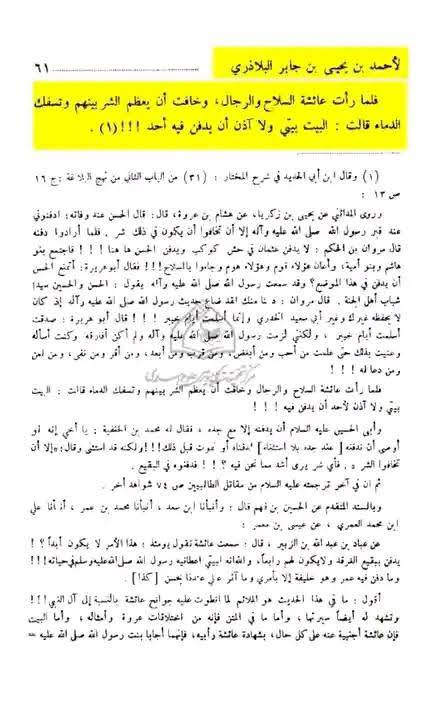 لأحمد بن يحيى بن جابر البلاذري ........................ ٦١
فلما رأت عائشة السلاح والرجال، وخافت أن يعظم الشر بينهم وتسفك
الدماء قالت : البيت بيتي ولا آذن أن يدفن فيه أحد !!!(١) .
(١) وقال ابن أبي الحديد في شرح المختار : (٣١) من الباب الثاني من نهج البلاغة : ج ١٦
ص ١٣ :
وروى المدائني عن يحيى بن زكريا، عن هشام بن عروة، قال: قال الحسن عند وفاته: ادفنوني
عند قبر رسول الله صلى الله عليه وآله إلا أن تخافوا أن يكون في ذلك شر . فلما أرادوا دفنه
قال مروان بن الحكم : لا يدفن عثمان في حش كوكب ويدفن الحسن ها هنا !!! فاجتمع بنو
هاشم وبنو أمية؛ وأعان هؤلاء قوم وهؤلاء قوم وجاءوا بالسلاح!!! فقال أبو هريرة : أتمنع الحسن
أن يدفن في هذا الموضع؟ وقد سمعت رسول الله صلى الله عليه وآله يقول : الحسن والحسين سيدا
شباب أهل الجنة . قال مروان : دعنا منك لقد ضاع حديث رسول الله صلى الله عليه وآله إذ كان
لا يحفظه غيرك وغير أبي سعيد الخدري وإنما أسلمت أيام خيبر !!! قال أبو هريرة : صدقت
أسلمت أيام خيبر ، ولكنني لزمت رسول الله صلى الله عليه وآله ولم أكن أفارقه وكنت أسأله
وعنيت بذلك حتى علمت من أحب ومن أبغض، ومن قرب ومن أبعد، ومن أقر ومن نفى، ومن لعن
ومن دعا له !!!
فلما رأت عائشة السلاح والرجال وخافت أن يعظم الشر بينهم وتسفك الدماء قالت : البيت
بيتي ولا آذن لأحد أن يدفن فيه !!!
وأبى الحسين عليه السلام أن يدفنه إلا مع جده ، فقال له محمد بن الحنفية : يا أخي إنه لو
أوصى أن ندفنه [عند جده بلا استثناء] لدفناه أو نموت قبل ذلك!!! ولكنه قد استثنى وقال: «إلا أن
تخافوا الشر » . فأي شر يرى أشد مما نحن فيه ؟ !! فدفنوه في البقيع .
ثم ان في آخر ترجمته عليه السلام من مقاتل الطالبيين ص ٧٤ شواهد أخر .
وبالسند المتقدم عن الحسين بن فهم قال : وأنبأنا ابن سعد ، أنبأنا محمد بن عمر ، أنبأنا علي
ابن محمد العمري ، عن عيسى بن معمر :
عن عباد بن عبد الله بن الزبير ، قال : سمعت عائشة تقول يومئذ : هذا الأمر لا يكون أبداً !
يدفن ببقيع الغرقد ولايكون لهم رابعاً، والله انه لبيتي اعطانيه رسول الله صلى الله عليه وسلم في حياته!!!
وما دفن فيه عمر وهو خليفة إلا بأمري وما أثر علي عندنا بحسن [كذا] .
أقول : ما في هذا الحديث هو الملائم لما انطوت عليه جوانح عائشة بالنسبة إلى آل النبي!!!
وتشهد له أيضاً سيرتها، وأما ما في المتن فإنه من اختلاقات عروة وأمثاله ، وأما البيت
فإن عائشة أجنبية عنه على كل حال، بشهادة عائشة وأبيه، فإنهما أجابا بنت رسول الله صلى الله عليه